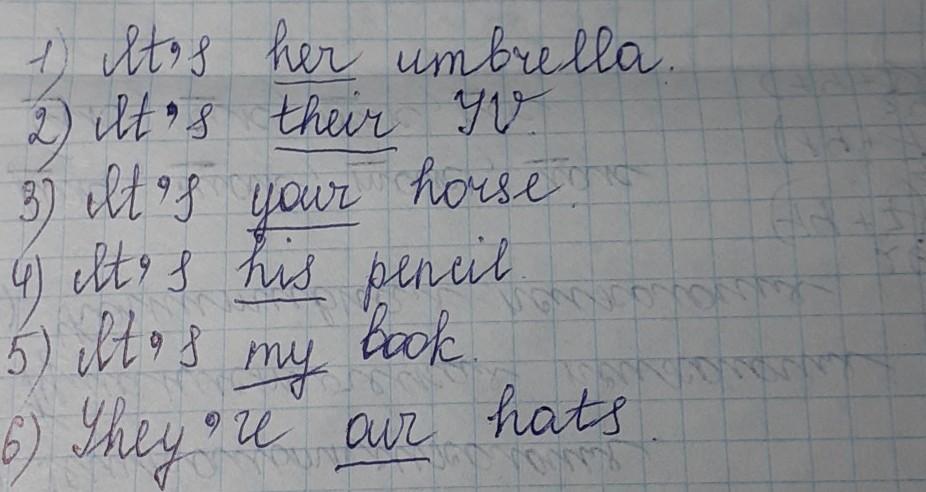 1) It's her umbrella.
2) It's their TV.
3) It's your horse.
4) It's his pencil.
5) It's my book.
6) They're our hats.